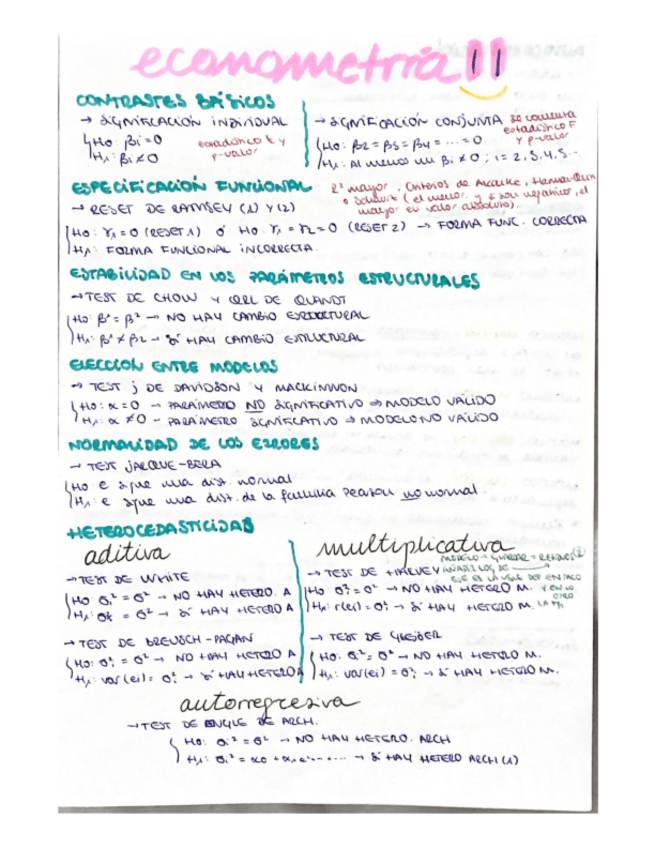 econometría II
CONTRASTES BÁSICOS
→ SIGNIFICACIÓN INDIVIDUAL
H0: βi = 0
H1: βi ≠ 0
estadístico t y
p-valor
→ SIGNIFICACIÓN CONJUNTA
se consulta
estadístico F
y p-valor
H0: β2 = β3 = β4 = ... = 0
H1: Al menos un βi ≠ 0; i = 2, 3, 4, 5...
ESPECIFICACIÓN FUNCIONAL
R² mayor, Criterios de Akaike, Hannan-Quin
o Schwarz (el menor, y si son negativos, el
mayor en valor absoluto).
→ RESET DE RAMSEY (1) Y (2)
H0: γ1 = 0 (RESET 1) ó H0: γ1 = γ2 = 0 (RESET 2) → FORMA FUNC. CORRECTA
H1: FORMA FUNCIONAL INCORRECTA.
ESTABILIDAD EN LOS PARÁMETROS ESTRUCTURALES
→ TEST DE CHOW Y QRL DE QUANDT
H0: β¹ = β² → NO HAY CAMBIO ESTRUCTURAL
H1: β¹ ≠ β² → SÍ HAY CAMBIO ESTRUCTURAL
ELECCIÓN ENTRE MODELOS
→ TEST J DE DAVIDSON Y MACKINNON
H0: α = 0 → PARÁMETRO NO SIGNIFICATIVO ⇒ MODELO VÁLIDO
H1: α ≠ 0 → PARÁMETRO SIGNIFICATIVO ⇒ MODELO NO VÁLIDO
NORMALIDAD DE LOS ERRORES
→ TEST JARQUE-BERA
H0: e sigue una dist. normal
H1: e sigue una dist. de la familia Pearson no normal.
HETEROCEDASTICIDAD
aditiva
→ TEST DE WHITE
H0: σi² = σ² → NO HAY HETERO. A
H1: σi² = σ² → SÍ HAY HETERO A
→ TEST DE BREUSCH-PAGAN
H0: σi² = σ² → NO HAY HETERO A
H1: var(ei) = σi² → SÍ HAY HETERO A
multiplicativa
MODELO → GUARDAR → RESIDUOS ②
→ TEST DE HARVEY AÑADIR LOG DE
H0: σi² = σ² → NO HAY HETERO M.
H1: r(ei) = σi² → SÍ HAY HETERO M.
→ TEST DE GLEJSER
H0: σi² = σ² → NO HAY HETERO M.
H1: var(ei) = σi² → SÍ HAY HETERO M.
autorregresiva
→ TEST DE ENGLE DE ARCH.
H0: σi² = σ² → NO HAY HETERO. ARCH
→ SÍ HAY HETERO ARCH (1)